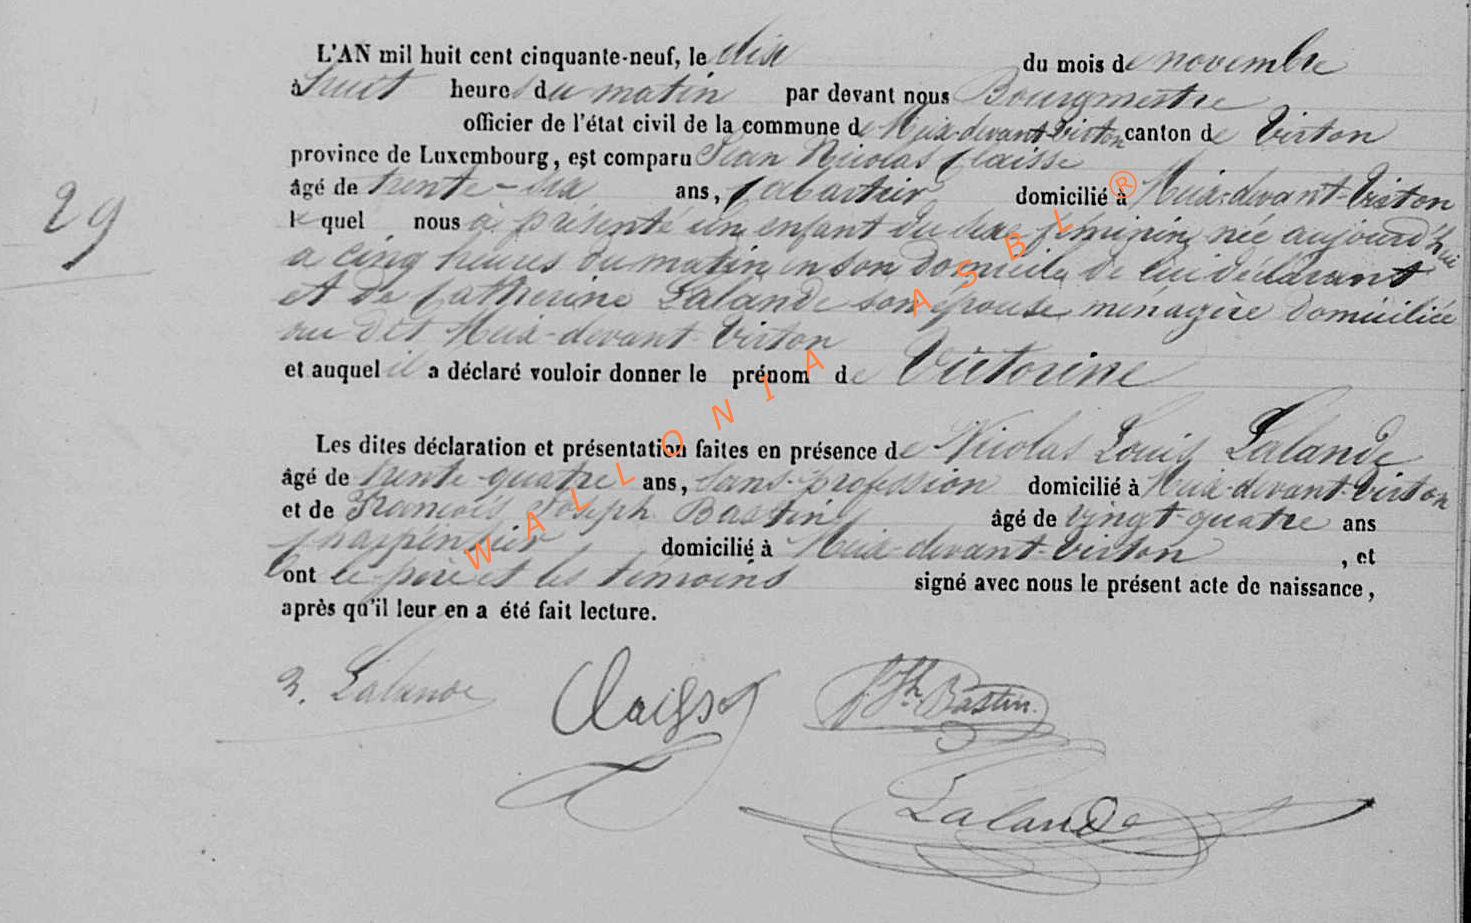 L'AN mil huit cent cinquante-neuf, le dix du mois de novembre
à huit heures du matin par devant nous Bourgmestre
officier de l'état civil de la commune de Meix-devant-Virton canton de Virton
province de Luxembourg, est comparu Jean Nicolas Claisse
âgé de trente-six ans, cabartier domicilié à Meix-devant-Virton
lequel nous a présenté un enfant du sexe féminin, née aujourd'hui
a cinq heures du matin en son domicile, de lui déclarant
et de Catherine Lalande son épouse, menagère domiciliée
au dit Meix-devant-Virton
et auquel il a déclaré vouloir donner le prénom de Victorine
Les dites déclaration et présentation faites en présence de Nicolas Louis Lalande
âgé de trente-quatre ans, sans-profession domicilié à Meix-devant-Virton
et de François Joseph Bastin âgé de vingt-quatre ans
charpentier domicilié à Meix-devant-Virton, et
ont le père et les témoins signé avec nous le présent acte de naissance,
après qu'il leur en a été fait lecture.
29
Lalande Claisse Bastin
Lalande
WALLONIA ASBL ®